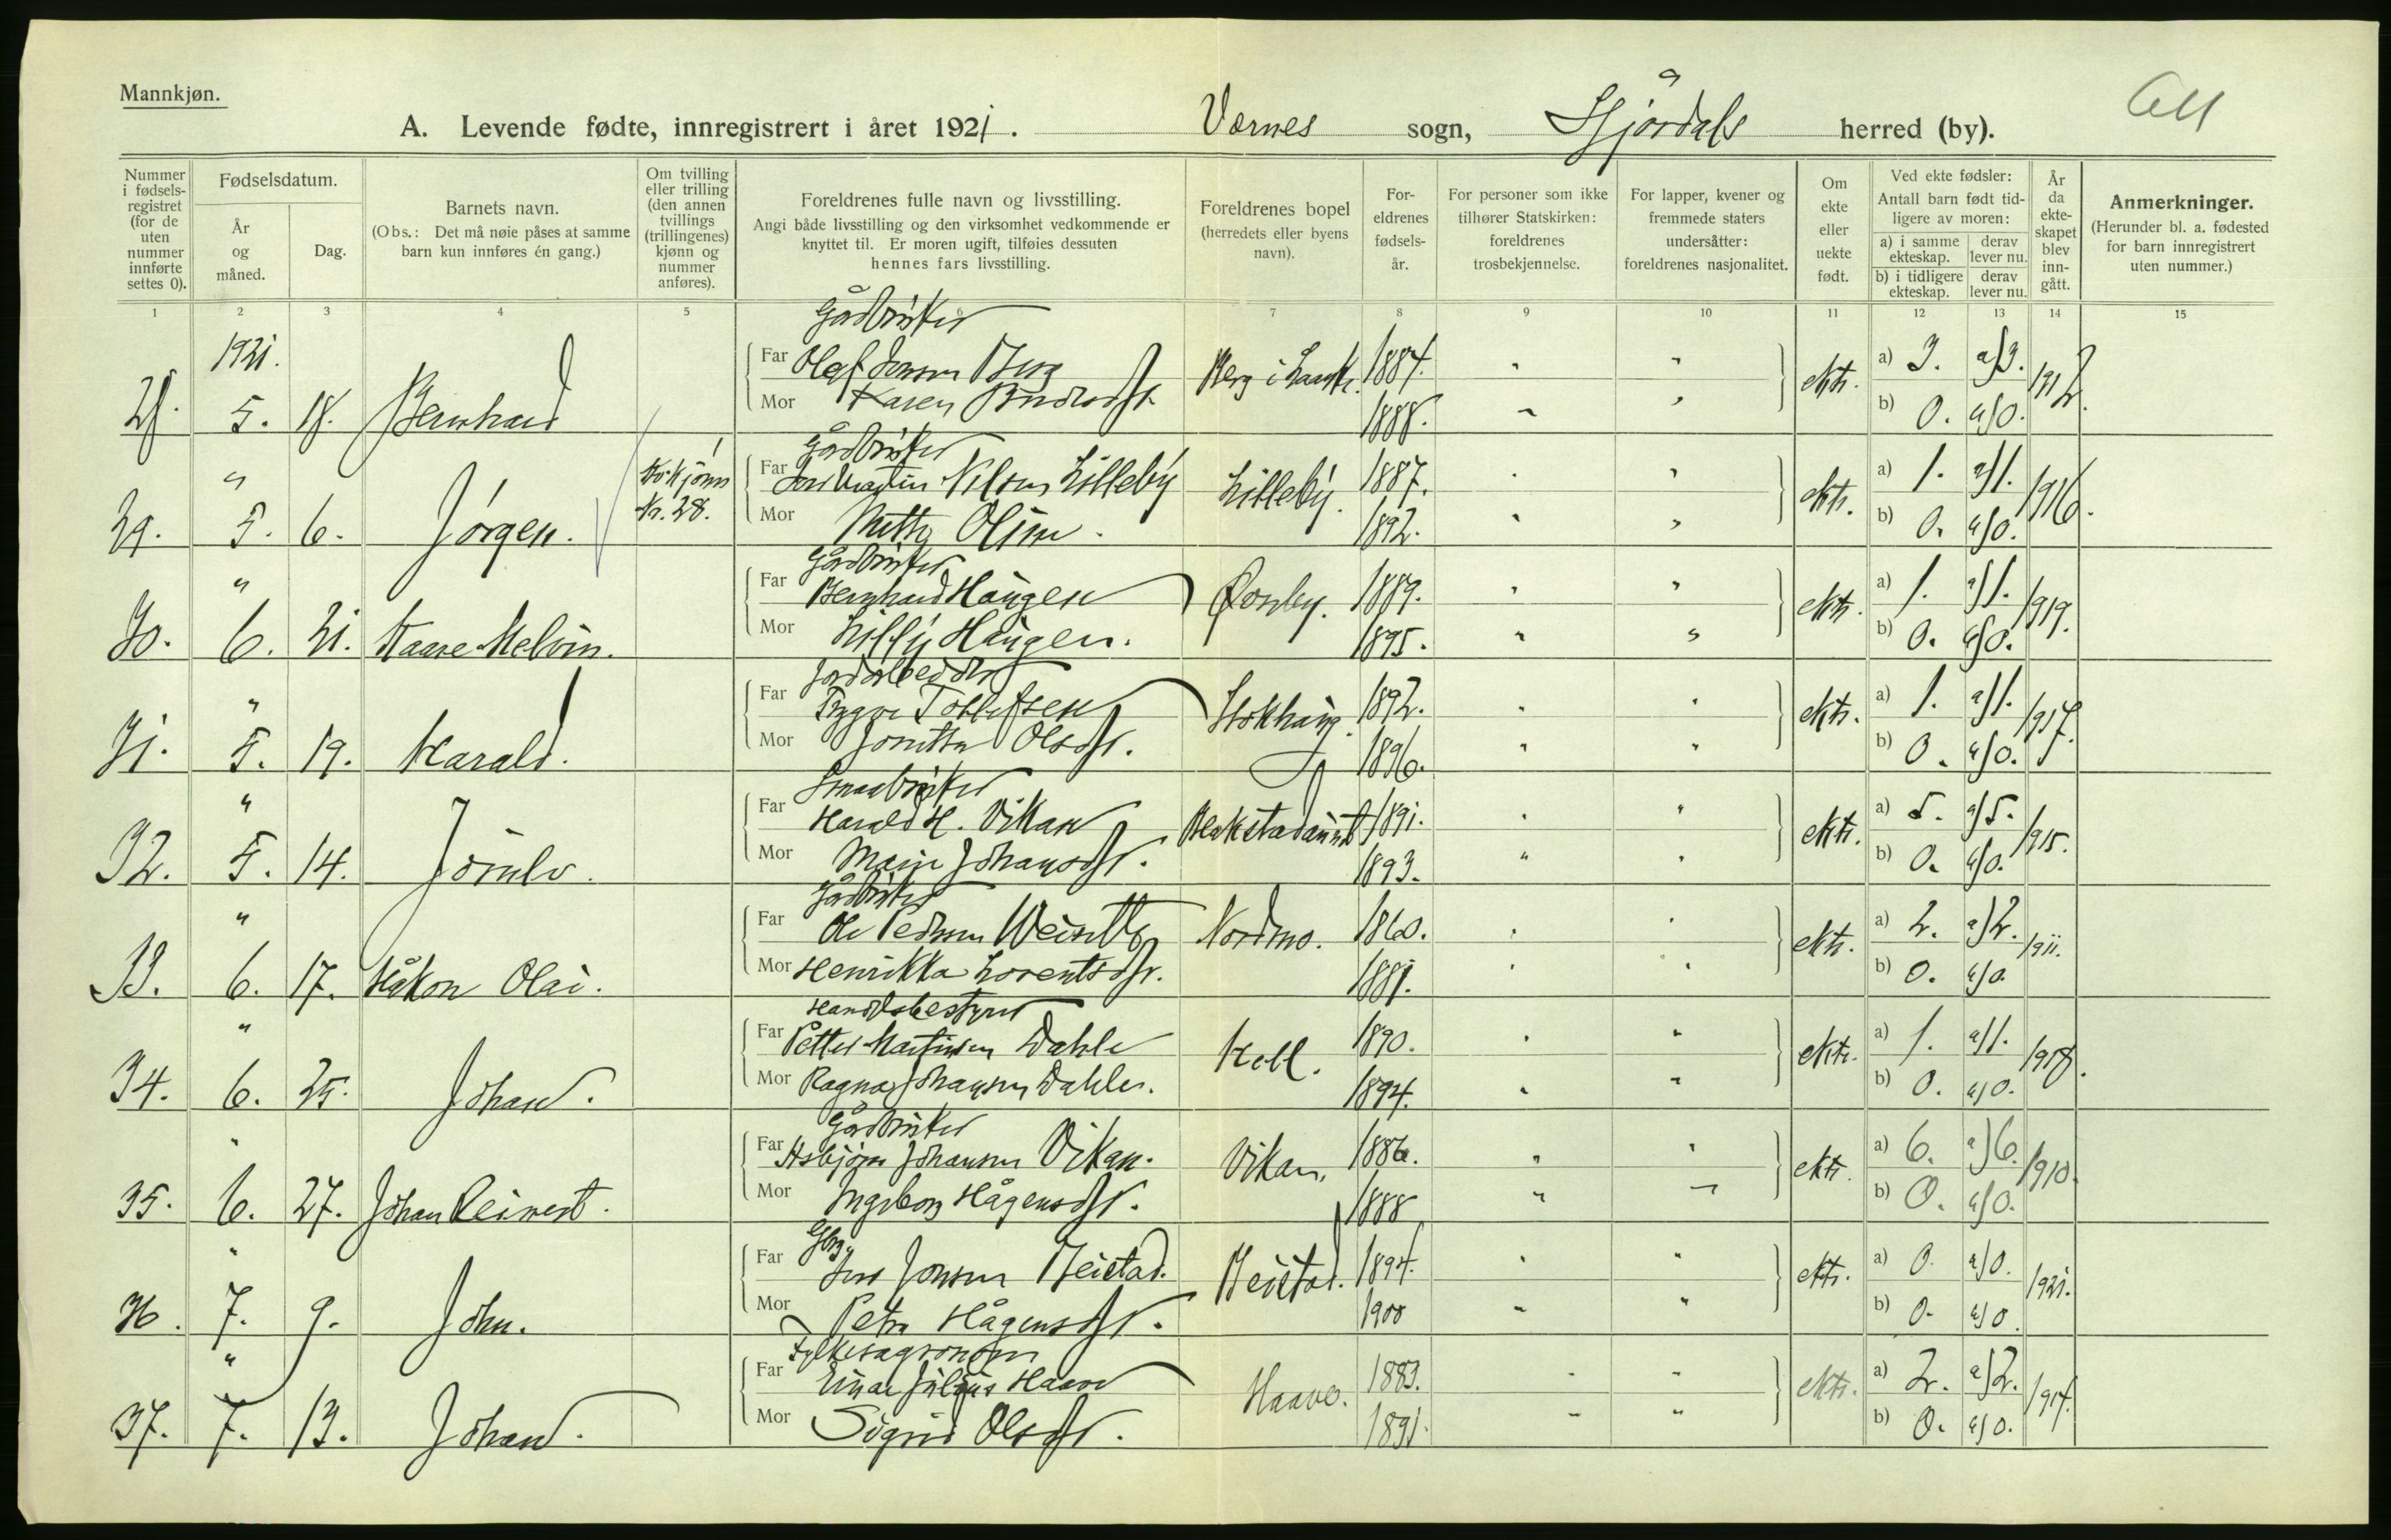 Mannkjøn.
A. Levende fødte, innregistrert i året 1921. Værnes sogn, Stjørdals herred (by).
Nummer i fødselsregistret (for de uten nummer innførte settes 0).
Fødselsdatum.
År og måned.
Dag.
Barnets navn.
(Obs.: Det må nøie påses at samme barn kun innføres én gang.)
Om tvilling eller trilling (den annen tvillings (trillingenes) kjønn og nummer anføres).
Foreldrenes fulle navn og livsstilling.
Angi både livsstilling og den virksomhet vedkommende er knyttet til. Er moren ugift, tilføies dessuten hennes fars livsstilling.
Foreldrenes bopel (herredets eller byens navn).
Foreldrenes fødselsår.
For personer som ikke tilhører Statskirken: foreldrenes trosbekjennelse.
For lapper, kvener og fremmede staters undersåtter: foreldrenes nasjonalitet.
Om ekte eller uekte født.
Ved ekte fødsler: Antall barn født tidligere av moren:
a) i samme ekteskap. derav lever nu.
b) i tidligere ekteskap. derav lever nu.
År da ekteskapet blev inngått.
Anmerkninger.
(Herunder bl. a. fødested for barn innregistrert uten nummer.)
1 2 3 4 5 6 7 8 9 10 11 12 13 14 15
1921.
Gårdbruker
Far Olaf Jensen Berg 1884. " " a) 3. a) 3.
28. 5. 18. Bernhard Mor Karen 1888. " " ekte. b) 0. b) 0. 1912.
Gårdbruker
" Kv.kjønn Nr. 28. Far Nilsen Lilleby Lilleby. 1887. " " a) 1. a) 1.
29. 5. 6. Jørgen. Mor 1892. " " ekte. b) 0. b) 0. 1916.
Gårdbruker
" Far Bernhard Haugen 1889. " " a) 1. a) 1.
30. 6. 21. Kaare Melvin. Mor Lilly Haugen. 1895. " " ekte. b) 0. b) 0. 1919.
Jordarbeider
" Far Trygve Tollefsen Stokhaug. 1892. " " a) 1. a) 1.
31. 5. 19. Harald. Mor Olsdtr. 1896. " " ekte. b) 0. b) 0. 1917.
Småbruker
" Far Harald H. Vikan 1891. " " a) 5. a) 5.
32. 5. 14. Mor Johansdtr. 1893. " " ekte. b) 0. b) 0. 1915.
Gårdbruker
" Far Ole Pedersen Nordmo. 1860. " " a) 2. a) 2.
33. 6. 17. Håkon Olai. Mor Henrikka Lorentsdtr. 1881. " " ekte. b) 0. b) 0. 1911.
Handelsbestyrer
" Far Petter Martinsen Dahle Hell. 1890. " " a) 1. a) 1.
34. 6. 25. Johan. Mor Ragna Johansen Dahle. 1894. " " ekte. b) 0. b) 0. 1918.
Gårdbruker
" Far Asbjørn Johansen Vikan. Vikan. 1886. " " a) 6. a) 6.
35. 6. 27. Johan Reinert. Mor Ingeborg Hågensdtr. 1888 " " ekte. b) 0. b) 0. 1910.
Gbr.
" Far Jens Jonsen Beistad. Beistad. 1894. " " a) 0. a) 0.
36. 7. 9. John. Mor Petra Hågensdtr. 1900 " " ekte. b) 0. b) 0. 1921.
Fylkesagronom
" Far Einar Julius Haave Haave. 1883. " " a) 2. a) 2.
37. 7. 13. Johan. Mor Sigrid Olsdtr. 1891. " " ekte. b) 0. b) 0. 1917.